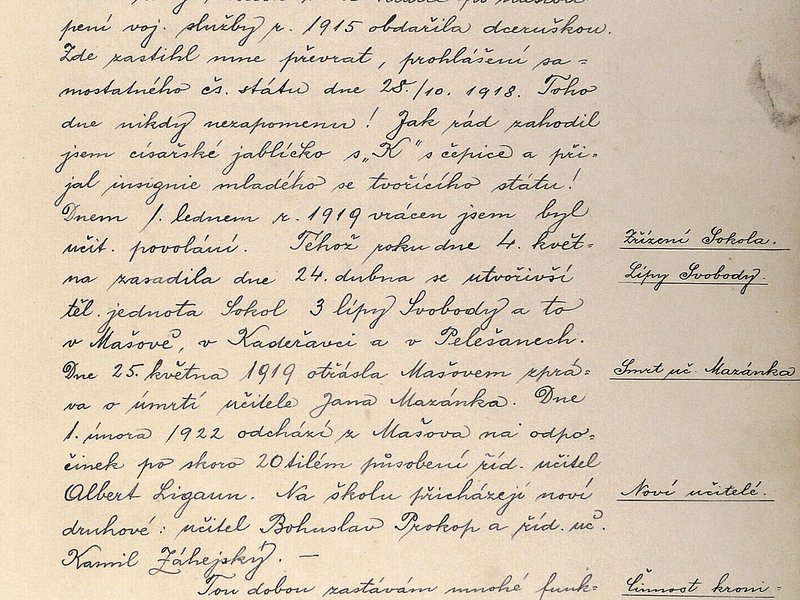 pení voj. služby r. 1915 obdařila dceruškou.
Zde zastihl mne převrat, prohlášení sa-
mostatného čs. státu dne 28./10. 1918. Toho
dne nikdy nezapomenu! Jak rád zahodil
jsem císařské jablíčko s „K“ s čepice a při-
jal insignie mladého se tvořícího státu!
Dnem 1. lednem r. 1919 vrácen jsem byl
učit. povolání. Téhož roku dne 4. květ-
Zřízení Sokola.
na zasadila dne 24. dubna se utvořivší
Lípy Svobody.
těl. jednota Sokol 3 lípy Svobody a to
v Mašově, v Kadeřavci a v Pelešanech.
Dne 25. května 1919 otřásla Mašovem zprá-
Smrt uč. Mazánka
va o úmrtí učitele Jana Mazánka. Dne
1. února 1922 odchází z Mašova na odpo-
činek po skoro 20tilém působení říd. učitel
Albert Ligaun. Na školu přicházejí noví
Noví učitelé.
druhové: učitel Bohuslav Prokop a říd. uč.
Kamil Záhejský. —
Tou dobou zastávám mnohé funk-
Činnost kroni-